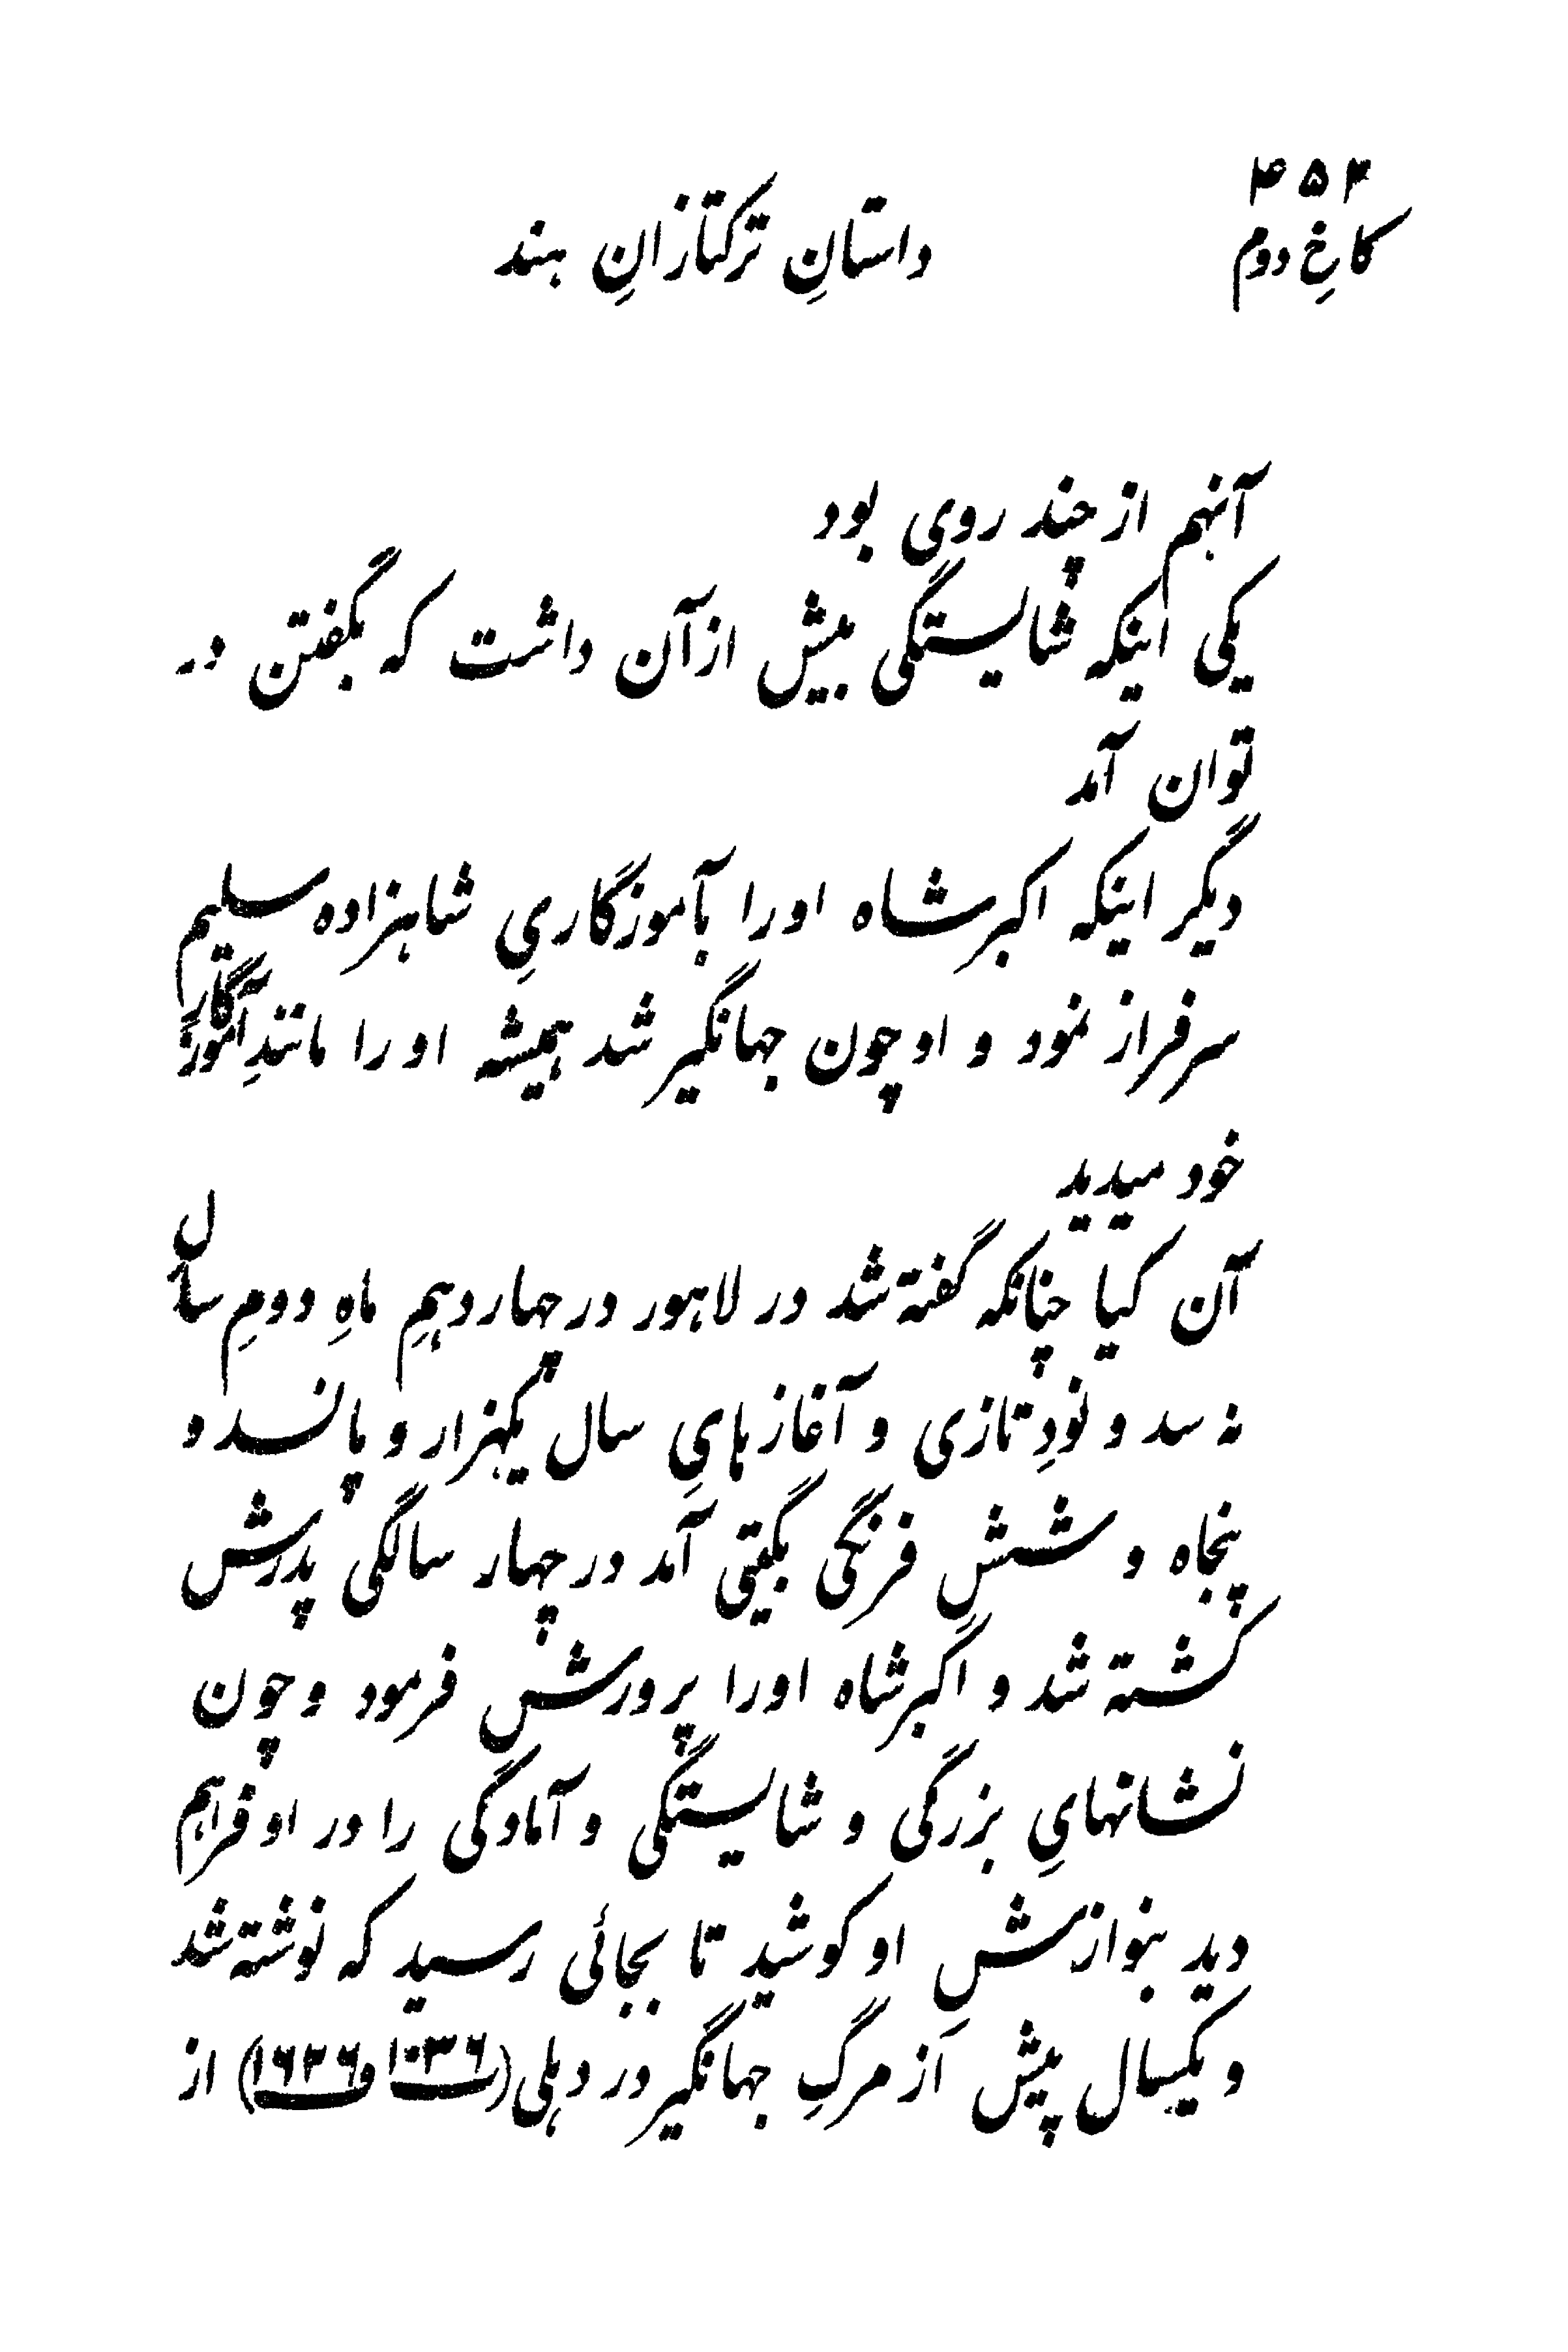 ۴۵۴
کاخِ دوم
داستانِ ترکتازانِ هند
آنهم از چند روی بود
یکی اینکه شایستگی بیش از آن داشت که بگفتن در
توان آمد
دیگر اینکه اکبرشاه اورا بآموزگاریِ شاهزاده سلیم
سرفراز نمود و او چون جهانگیر شد همیشه اورا مانندِ آموزگارِ
خود میدید
آن کیا چنانکه گفته شد در لاهور در چهاردهمِ ماهِ دومِ سال
نه سد و نودِ تازی و آغازهایِ سال یکهزار و پانسد و
پنجاه و ششِ فرنگی بگیتی آمد در چهار سالگی پدرش
کشته شد و اکبرشاه اورا پرورش فرمود و چون
نشانهایِ بزرگی و شایستگی و آمادگی را در او فراهم
دید بنوازشِ او کوشید تا بجائی رسید که نوشته شد
و یکسال پیش از مرگِ جهانگیر در دهلی (۱۰۳۶ ۱۶۲۶) از